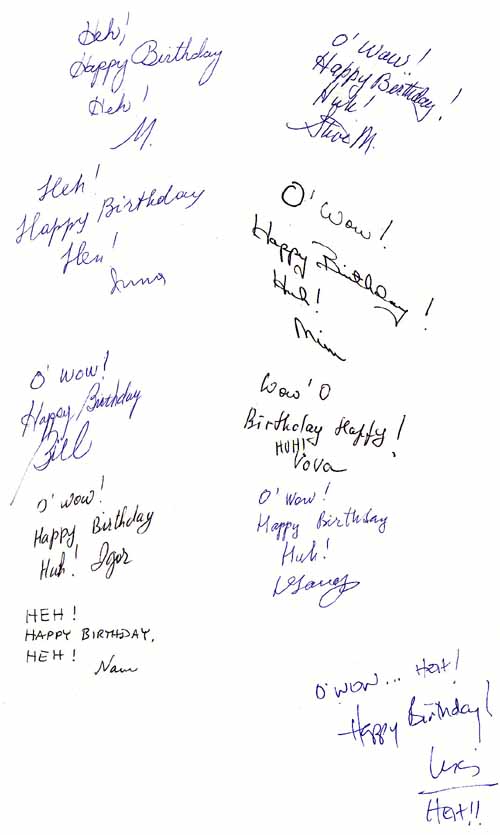 Heh!
Happy Birthday
Heh!
M.
O' Wow!
Happy Birthday!
Huh!
Steve M.
Heh!
Happy Birthday
Heh!
Inna
O' Wow!
Happy Birthday!
Huh!
O' Wow!
Happy Birthday
Bill
Wow' O
Birthday Happy!
HUH!
VoVa
O' wow!
Happy Birthday
Huh! Igor
O' Wow!
Happy Birthday
Huh!
HEH!
HAPPY BIRTHDAY.
HEH!
Nam
O' WOW... HEH!
Happy Birthday!
HEH!!